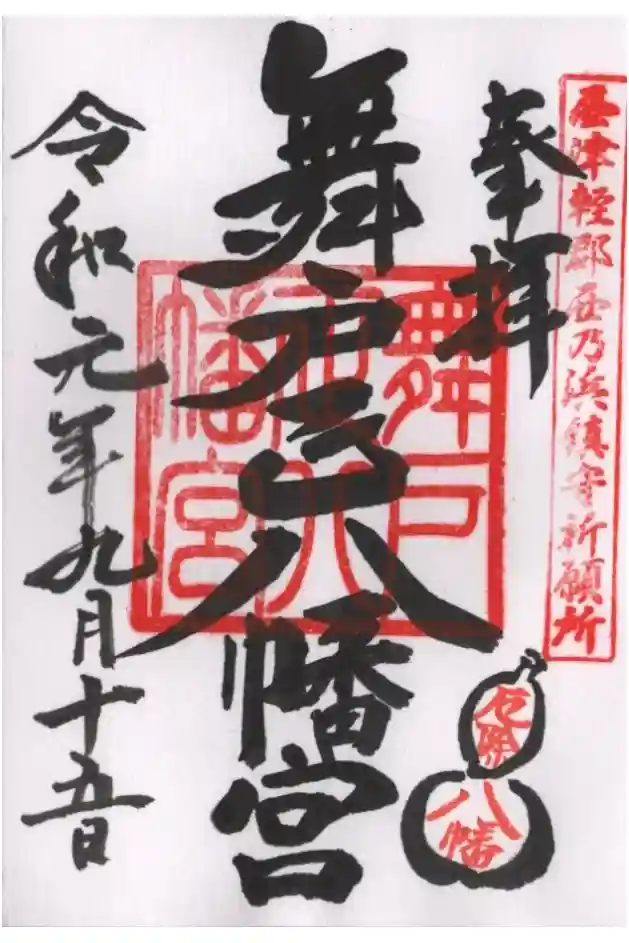 西津軽郡西乃浜鎮守祈願所
奉拝
舞戸正八幡宮
舞戸
正八
幡宮
令和元年九月十五日
厄除
八幡